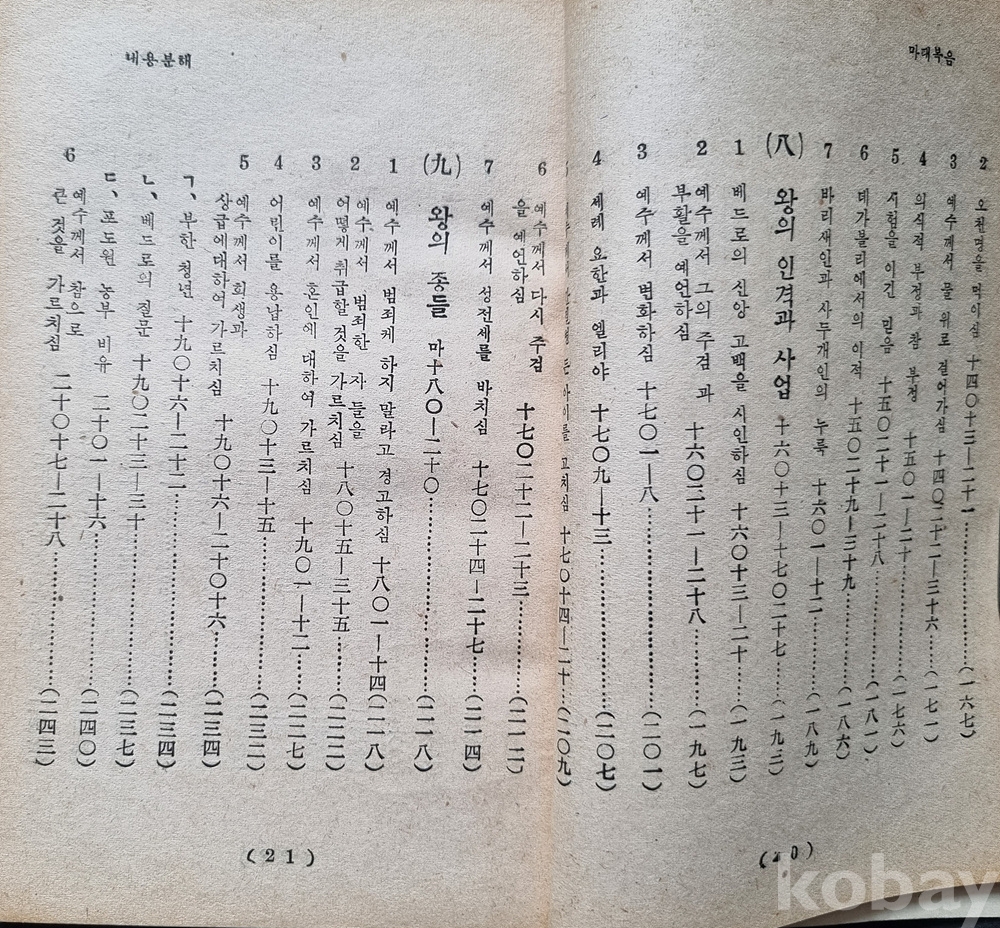 마태복음
2 오천명을 먹이심 十四〇十三—二十一…………(一六七)
3 예수께서 물 위로 걸어가심 十四〇二十二—三十六……(一七一)
4 의식적 부정과 참 부정 十五〇一—二十……(一七六)
5 시험을 이긴 믿음 十五〇二十一—二十八……(一八一)
6 데가볼리에서의 이적 十五〇二十九—三十九……(一八六)
7 바리새인과 사두개인의 누룩 十六〇一—十二……(一八九)
(八) 왕의 인격과 사업 十六〇十三—十七〇二十七……(一九三)
1 베드로의 신앙 고백을 시인하심 十六〇十三—二十……(一九三)
2 예수께서 그의 주검 과
부활을 예언하심 十六〇二十一—二十八……(一九七)
3 예수께서 변화하심 十七〇一—八…………(二〇一)
4 세례 요한과 엘리야 十七〇九—十三…………(二〇七)
고치심 十七〇十四—二十……(二〇九)
(20)
내용분해
6 예수께서 다시 주검
을 예언하심 十七〇二十二—二十三…………(二一二)
7 예수께서 성전세를 바치심 十七〇二十四—二十七……(二一四)
(九) 왕의 종들 마十八〇—二十〇…………(二一八)
1 예수께서 범죄케 하지 말라고 경고하심 十八〇一—十四(二一八)
2 예수께서 범죄한 자들을
어떻게 취급할 것을 가르치심 十八〇十五—三十五……(二二二)
3 예수께서 혼인에 대하여 가르치심 十九〇一—十二……(二二七)
4 어린이를 용납하심 十九〇十三—十五…………(二三二)
5 예수께서 희생과
상급에대하여 가르치심 十九〇十六—二十〇十六……(二三四)
ㄱ、부한 청년 十九〇十六—二十二…………(二三四)
ㄴ、베드로의 질문 十九〇二十三—三十…………(二三七)
ㄷ、포도원 농부 비유 二十〇一—十六…………(二四〇)
6 예수께서 참으로
큰 것을 가르치심 二十〇十七—二十八…………(二四三)
(21)
kobay